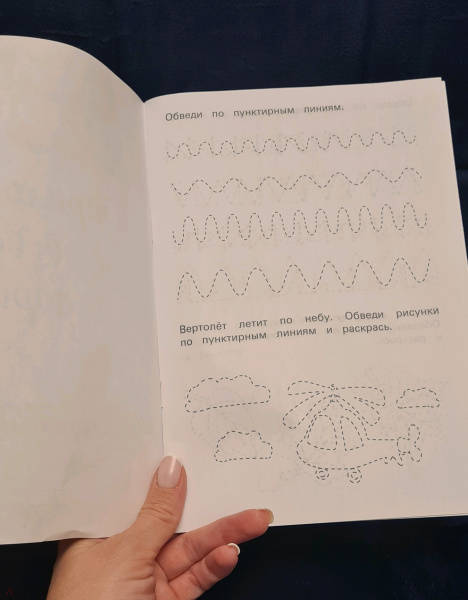 Обведи по пунктирным линиям.
Вертолёт летит по небу. Обведи рисунки
по пунктирным линиям и раскрась.